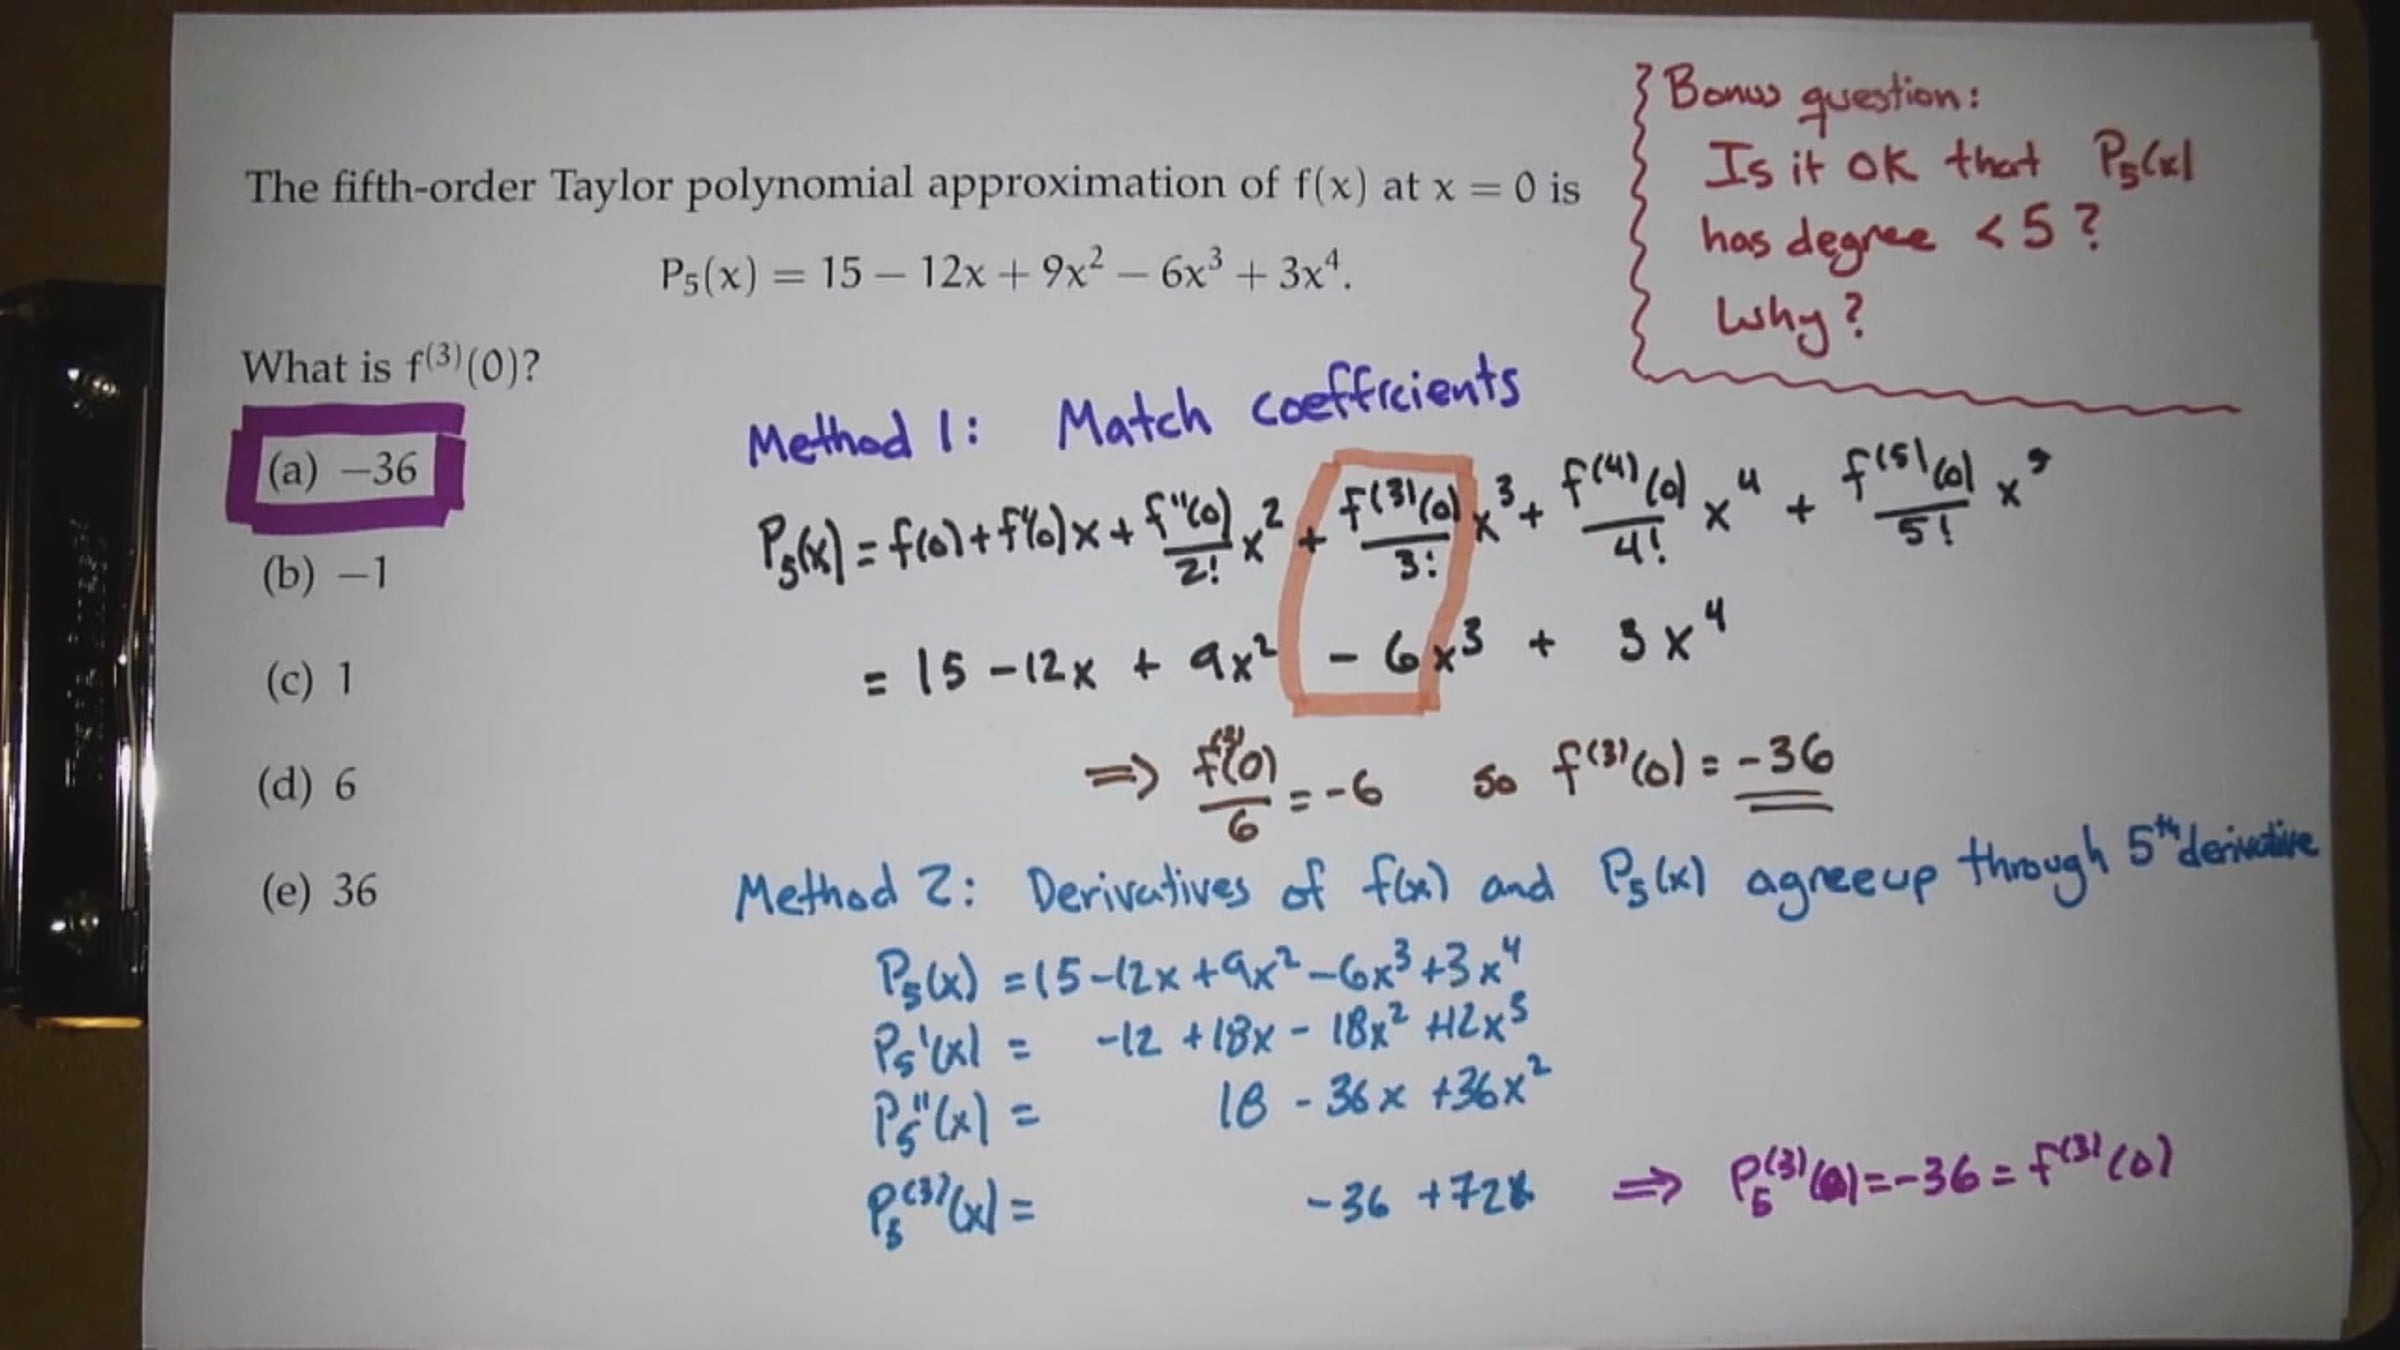 The fifth-order Taylor polynomial approximation of f(x) at x = 0 is
P₅(x) = 15 − 12x + 9x² − 6x³ + 3x⁴.
What is f⁽³⁾(0)?
(a) −36
(b) −1
(c) 1
(d) 6
(e) 36
Bonus question:
Is it OK that P₅(x)
has degree < 5?
Why?
Method 1: Match coefficients
P₅(x) = f(0) + f'(0)x + f''(0)/2! x² + f⁽³⁾(0)/3! x³ + f⁽⁴⁾(0)/4! x⁴ + f⁽⁵⁾(0)/5! x⁵
= 15 − 12x + 9x² − 6x³ + 3x⁴
⇒ f⁽³⁾(0)/6 = −6 so f⁽³⁾(0) = −36
Method 2: Derivatives of f(x) and P₅(x) agree up through 5th derivative
P₅(x) = 15 − 12x + 9x² − 6x³ + 3x⁴
P₅'(x) = −12 + 18x − 18x² + 12x³
P₅''(x) = 18 − 36x + 36x²
P₅⁽³⁾(x) = −36 + 72x ⇒ P₅⁽³⁾(0) = −36 = f⁽³⁾(0)